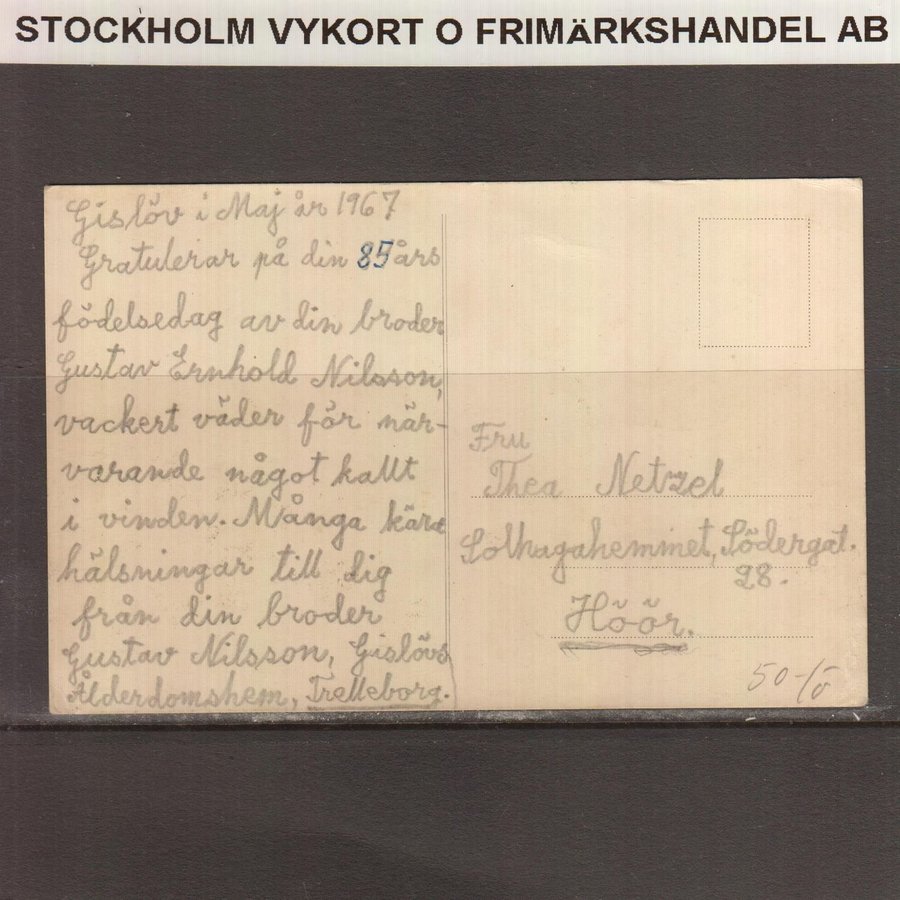 STOCKHOLM VYKORT O FRIMÄRKSHANDEL AB
Gislöv i Maj år 1967
Gratulerar på din 85 års
födelsedag av din broder
Gustav Ernhold Nilsson,
vackert väder för när-
varande något kallt
i vinden. Många kära
hälsningar till dig
från din broder
Gustav Nilsson, Gislövs
Ålderdomshem, Trelleborg.
Fru
Thea Netzel
Solhagahemmet, Södergat.
28.
Höör.
50-